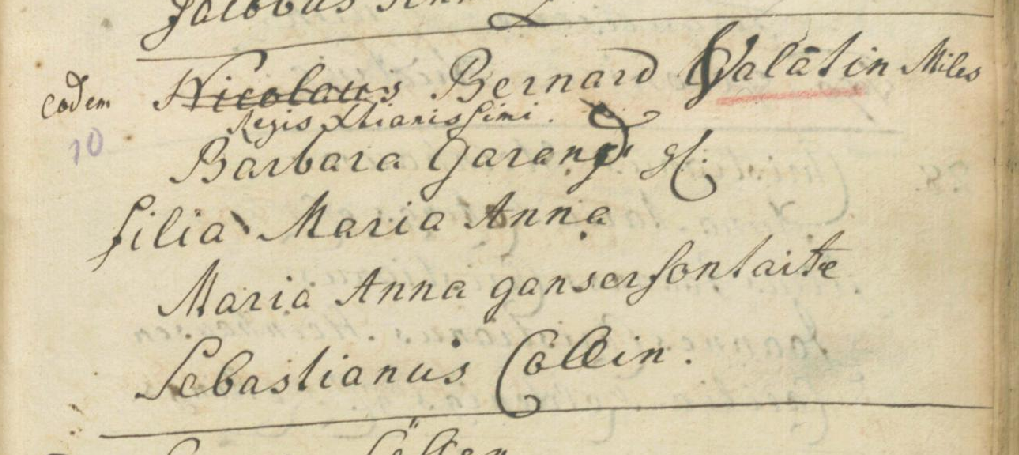 Jacobus
eodem Nicolaus Bernard Valātin Miles
Regis Xtianissimi.
10
Barbara Garand gl:
filia Maria Anna
Maria Anna ganserfontaite
Sebastianus Collin.